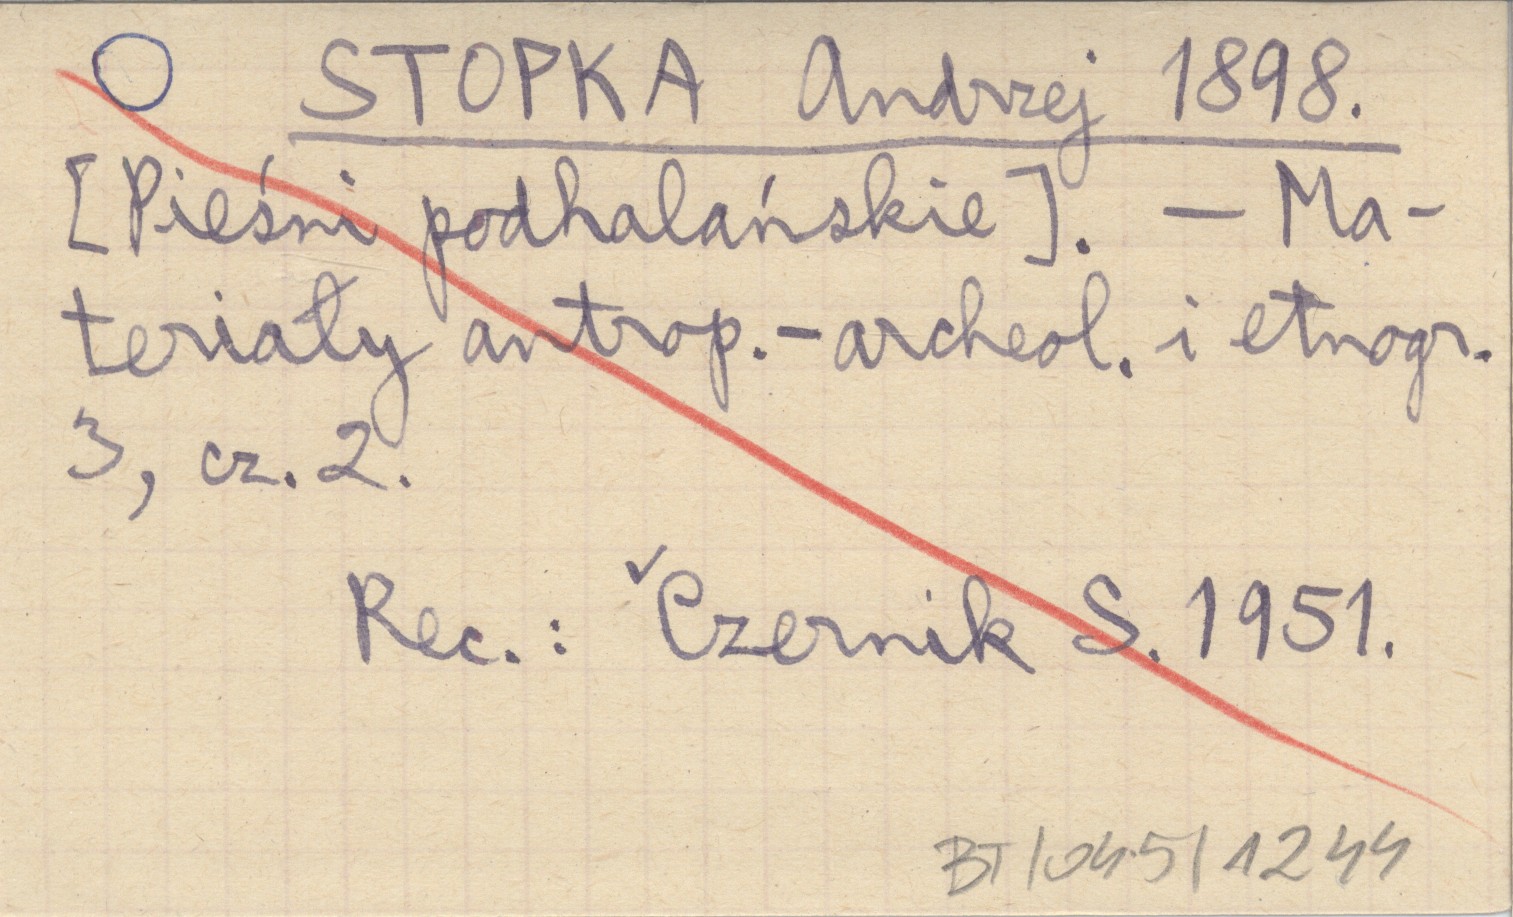 STOPKA Andrzej 1898.
[Pieśni podhalańskie]. — Ma-
teriały antrop.-archeol. i etnogr.
3, cz. 2.
Rec.: ✓Czernik S. 1951.
BT/045/1244